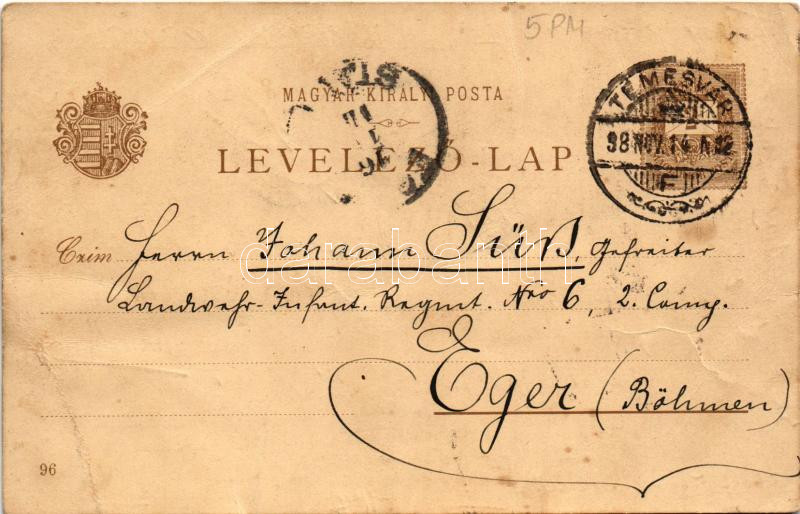 5 PM
MAGYAR KIRÁLYI POSTA
TEMESVÁR
98 NOV. 14
F
LEVELEZŐ-LAP
Czim Herrn Johann Süß, Gefreiter
Landwehr-Infant. Regmt. Nro 6, 2. Comp.
Eger (Böhmen)
96
darabanth